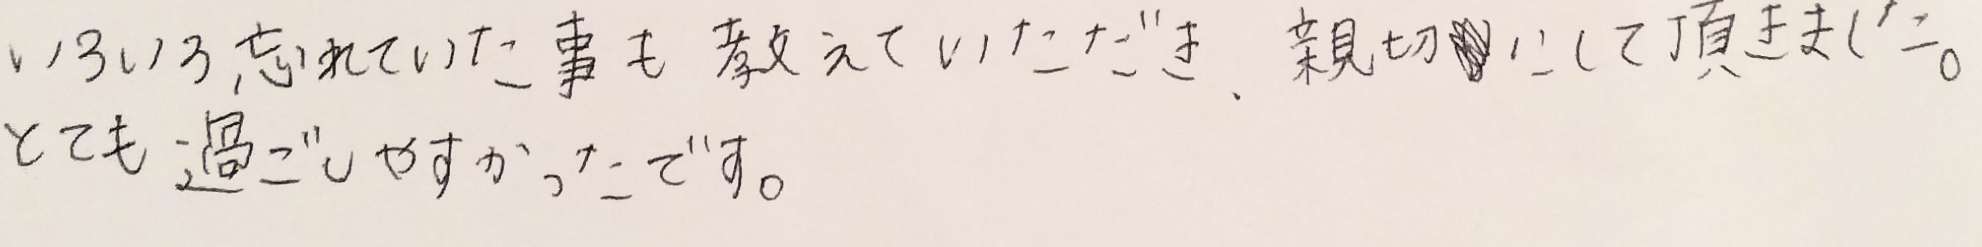 いろいろ忘れていた事も教えていただき、親切にして頂きました。
とても過ごしやすかったです。